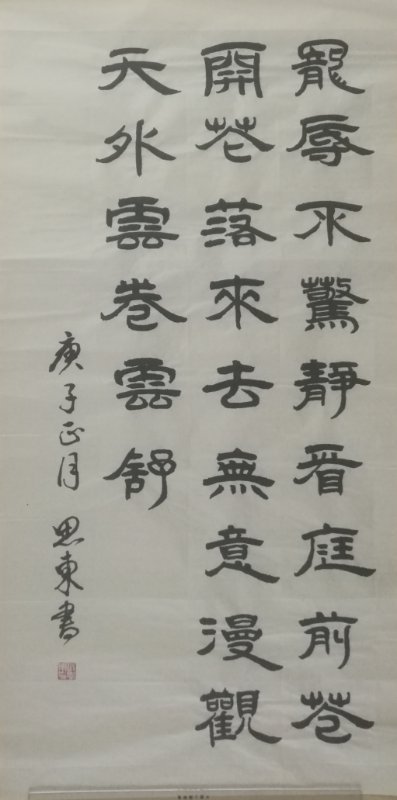 寵辱不驚靜看庭前花
開花落來去無意漫觀
天外雲卷雲舒
庚子正月 思東書